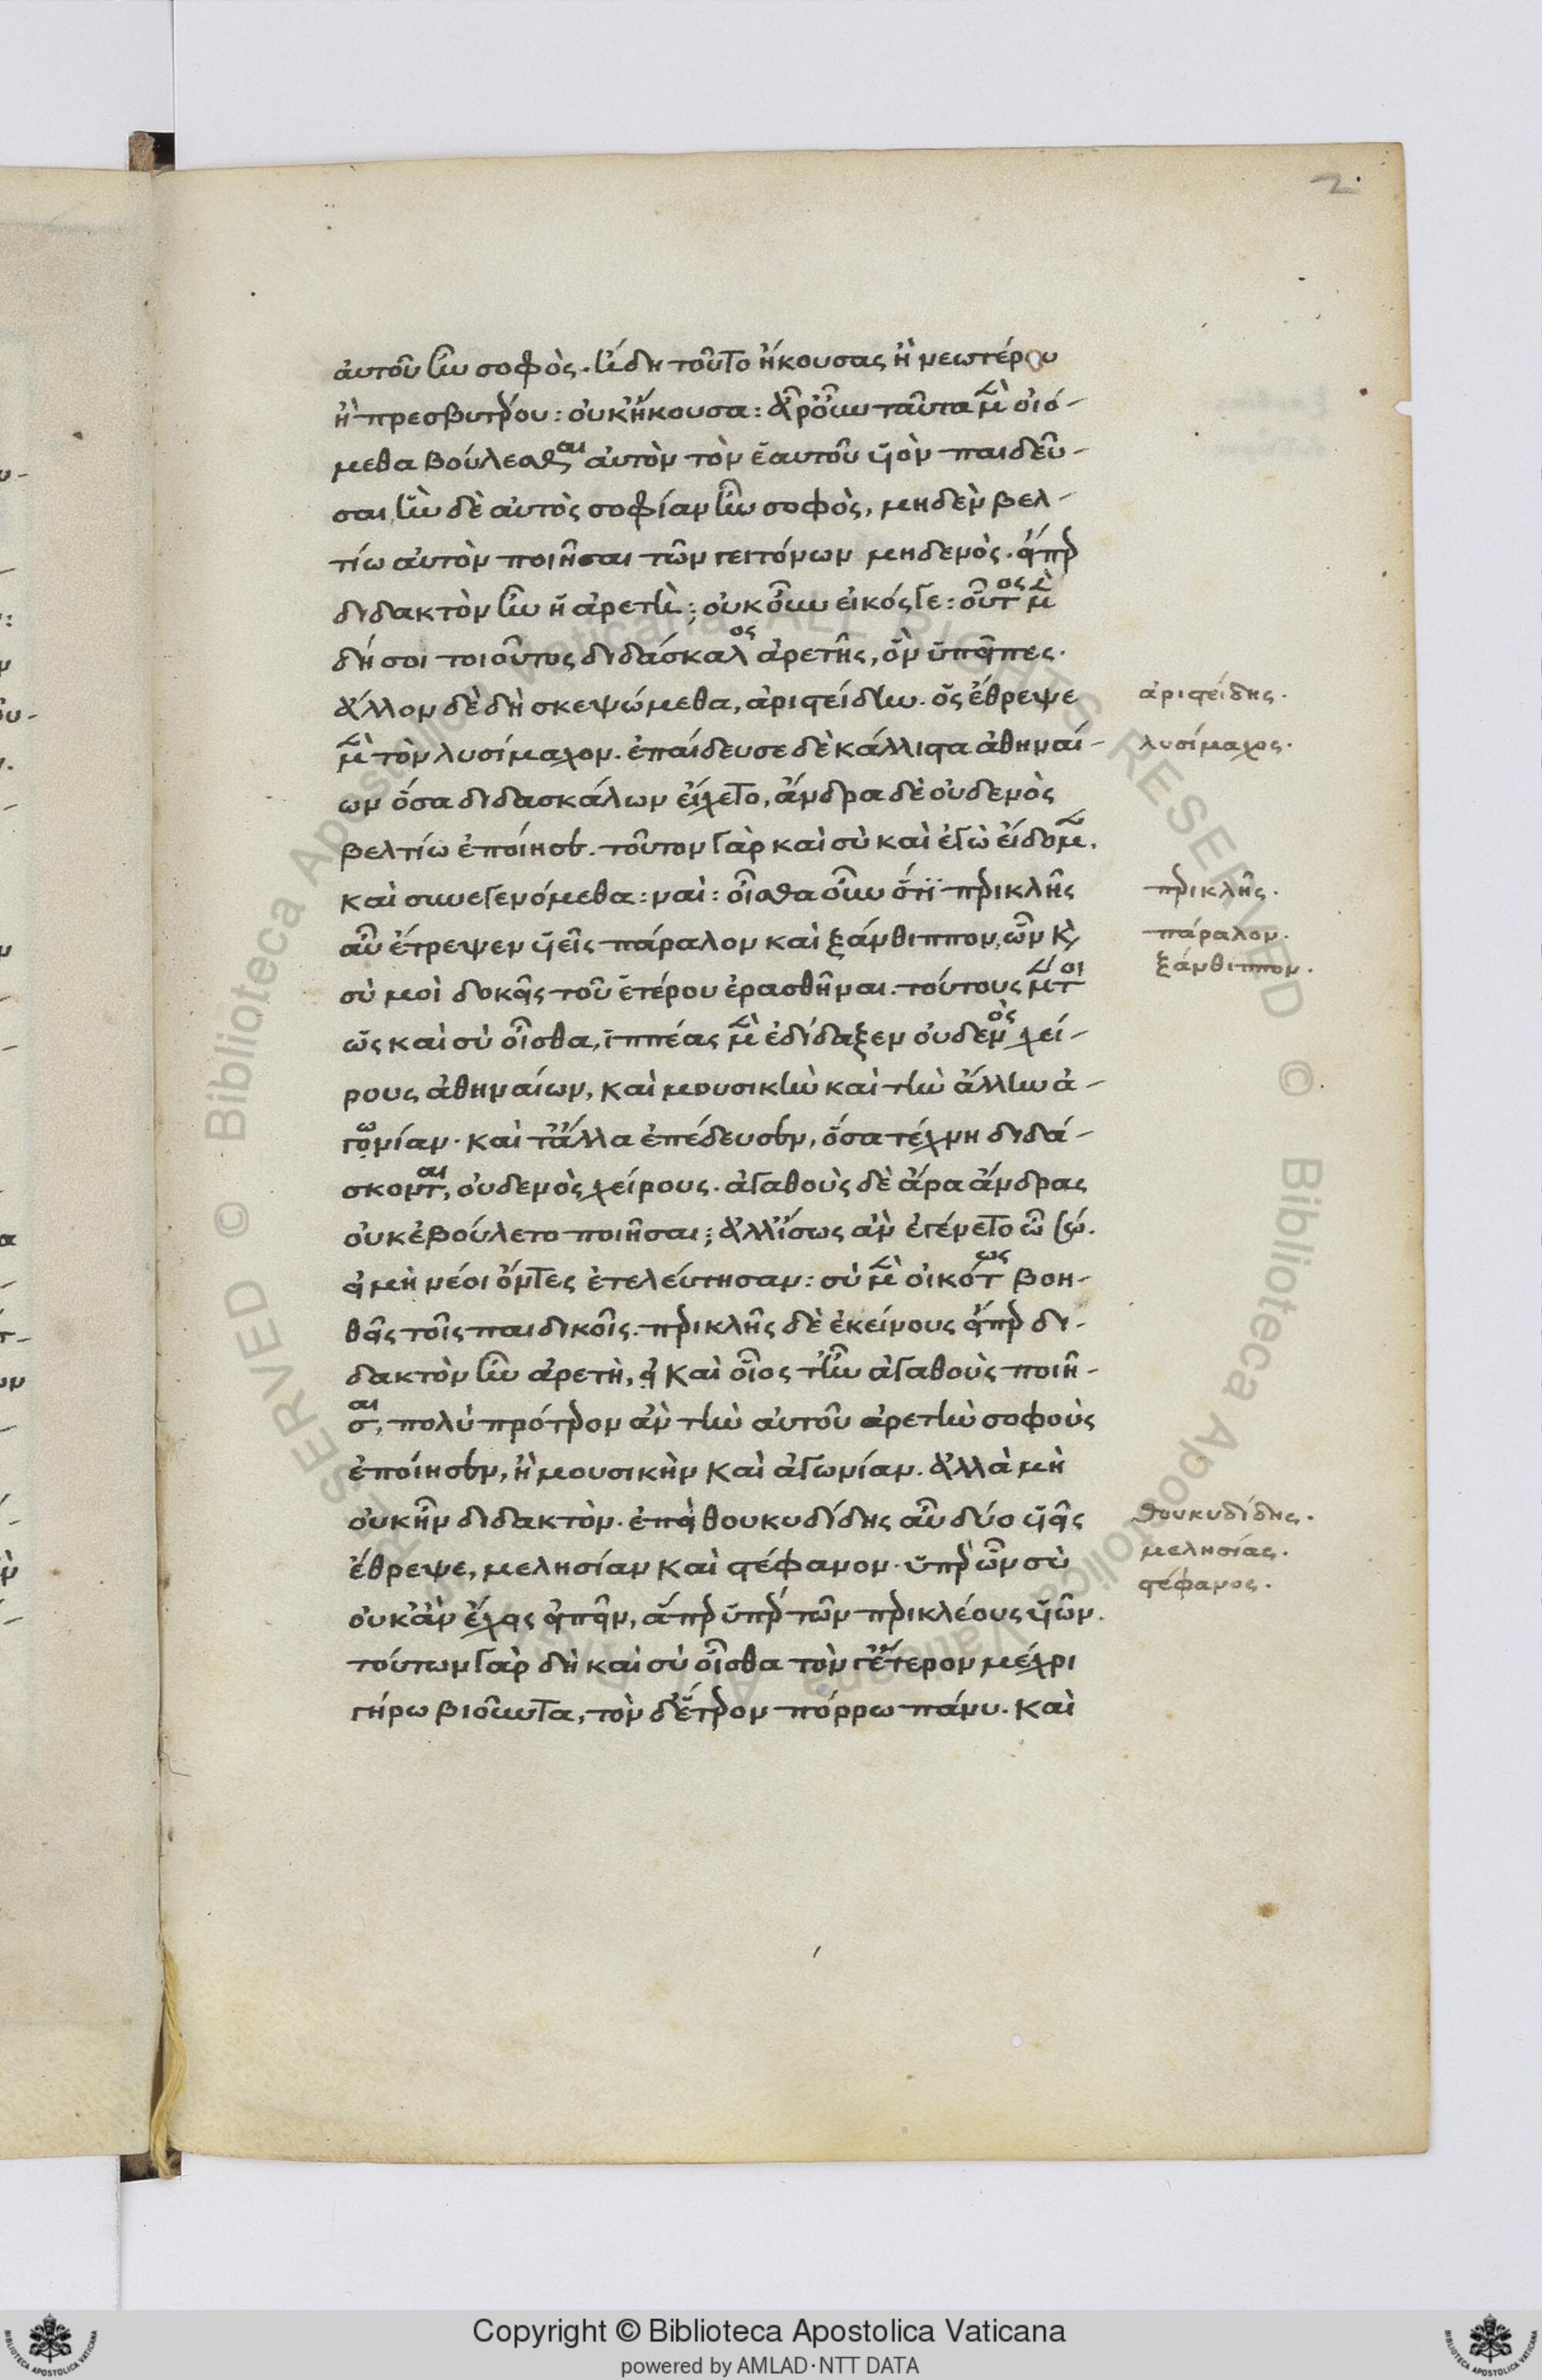 2.
αὐτοῦ ἦν σοφὸς. ἤδη τοῦτο ἤκουσας ἢ νεωτέρου
ἢ πρεσβυτέρου: οὐκ ἤκουσα: ἆρ' οὖν ταῦτα μὲν οἰό-
μεθα βούλεσθαι αὐτὸν τὸν ἑαυτοῦ υἱὸν παιδεῦ-
σαι, ἣν δὲ αὐτὸς σοφίαν ἦν σοφὸς, μηδὲν βελ-
τίω αὐτὸν ποιῆσαι τῶν γειτόνων μηδενὸς. εἴπερ
διδακτὸν ἦν ἡ ἀρετὴ; οὐκ οὖν εἰκός γε: οὗτος μὲν
δή σοι τοιοῦτος διδάσκαλος ἀρετῆς, ὃν ὑπεῖπες.
ἄλλον δὲ δὴ σκεψώμεθα, ἀριστείδην. ὃς ἔθρεψε
μὲν τὸν λυσίμαχον. ἐπαίδευσε δὲ κάλλιστα ἀθηναί-
ων ὅσα διδασκάλων εἴχετο, ἄνδρα δὲ οὐδενὸς
βελτίω ἐποίησε. τοῦτον γὰρ καὶ σὺ καὶ ἐγὼ εἴδομεν.
καὶ συνεγενόμεθα: ναὶ: οἶσθα οὖν ὅτι περικλῆς
αὖ ἔτρεψεν υἱεῖς πάραλον καὶ ξάνθιππον, ὧν καὶ
σύ μοι δοκεῖς τοῦ ἑτέρου ἐρασθῆναι. τούτους μέντοι
ὡς καὶ σὺ οἶσθα, ἱππέας μὲν ἐδίδαξεν οὐδενὸς χεί-
ρους ἀθηναίων, καὶ μουσικὴν καὶ τὴν ἄλλην ἀ-
γωνίαν. καὶ τἆλλα ἐπέδευσεν, ὅσα τέχνη διδά-
σκονται, οὐδενὸς χείρους. ἀγαθοὺς δὲ ἄρα ἄνδρας
οὐκ ἐβούλετο ποιῆσαι; ἀλλ' ἴσως ἂν ἐγένετο ὦ σώ.
εἰ μὴ νέοι ὄντες ἐτελεύτησαν: σὺ μὲν οἰκότως βοη-
θεῖς τοῖς παιδικοῖς. περικλῆς δὲ ἐκείνους εἴπερ δι-
δακτὸν ἦν ἀρετὴ, εἰ καὶ οἷος τ' ἦν ἀγαθοὺς ποιῆ-
σαι, πολὺ πρότερον ἂν τὴν αὐτοῦ ἀρετὴν σοφοὺς
ἐποίησεν, ἢ μουσικὴν καὶ ἀγωνίαν. ἀλλὰ μὴ
οὐκ ἦν διδακτὸν. ἐπεὶ θουκυδίδης αὖ δύο υἱεῖς
ἔθρεψε, μελησίαν καὶ στέφανον. ὑπὲρ ὧν σὺ
οὐκ ἂν ἔχεις εἰπεῖν, ἅπερ ὑπὲρ τῶν περικλέους υἱῶν.
τούτων γὰρ δὴ καὶ σὺ οἶσθα τὸν γ' ἕτερον μέχρι
γήρω βιοῦντα, τὸν δ' ἕτερον πόρρω πάνυ. καὶ
ἀριστείδης.
λυσίμαχος.
περικλῆς.
πάραλον.
ξάνθιππον.
θουκυδίδης.
μελησίας.
στέφανος.
Copyright © Biblioteca Apostolica Vaticana
powered by AMLAD·NTT DATA